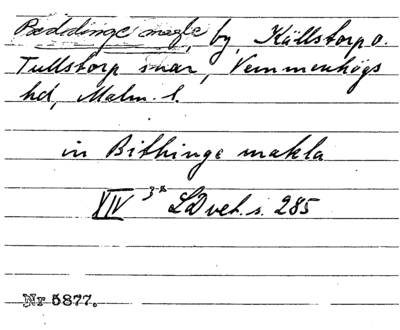 Bæddinge magle, by, Källstorp o.
Tullstorp snar, Vemmenhögs
hd, Malm. l.
in Bithinge makla
XIV 3x LD vet. s. 285
Nr 5877.